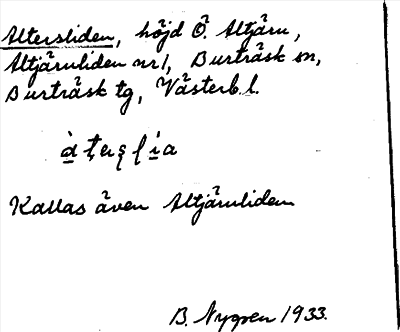 Altersliden, höjd Ö. Altjärn,
Altjärnliden nr 1, Burträsk sn,
Burträsk tg, Västerb. l.
Kallas även Altjärnliden
B. Nygren 1933.